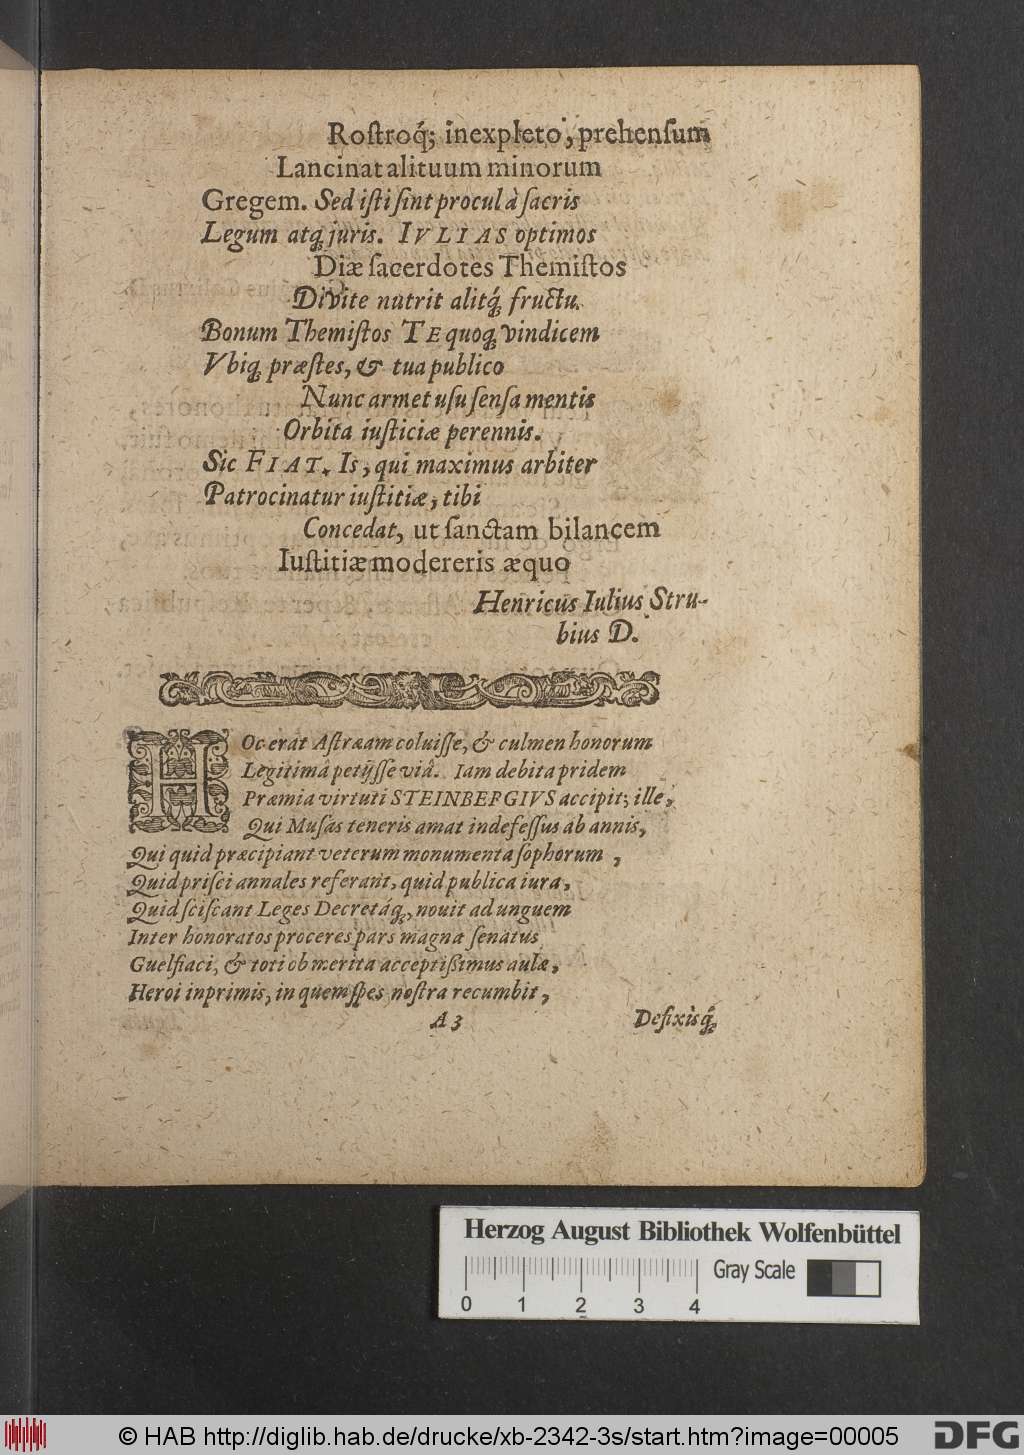 Roſtroq́; inexpleto, prehenſum
Lancinat alituum minorum
Gregem. Sed iſti ſint procul à ſacris
Legum atq; juris. IVLIAS optimos
Diæ ſacerdotes Themiſtos
Divite nutrit alitq́; fructu.
Bonum Themiſtos TE quoq; vindicem
Vbiq; præſtes, & tua publico
Nunc armet uſu ſenſa mentis
Orbita iuſticiæ perennis.
Sic FIAT. Is, qui maximus arbiter
Patrocinatur iuſtitiæ, tibi
Concedat, ut ſanctam bilancem
Iuſtitiæ modereris æquo
Henricus Iulius Stru-
bius D.
HOc erat Aſtræam coluiſſe, & culmen honorum
Legitimâ petijſſe viâ. Iam debita pridem
Præmia virtuti STEINBERGIVS accipit; ille,
Qui Muſas teneris amat indefeſſus ab annis,
Qui quid præcipiant veterum monumenta ſophorum,
Quid priſci annales referant, quid publica iura,
Quid ſciſcant Leges Decretáq;, nouit ad unguem
Inter honoratos proceres pars magna ſenatus
Guelfiaci, & toti ob merita acceptißimus aulæ,
Heroi inprimis, in quem ſpes noſtra recumbit,
A 3
Defixìsq́;
Herzog August Bibliothek Wolfenbüttel
Gray Scale
0 1 2 3 4
© HAB http://diglib.hab.de/drucke/xb-2342-3s/start.htm?image=00005
DFG